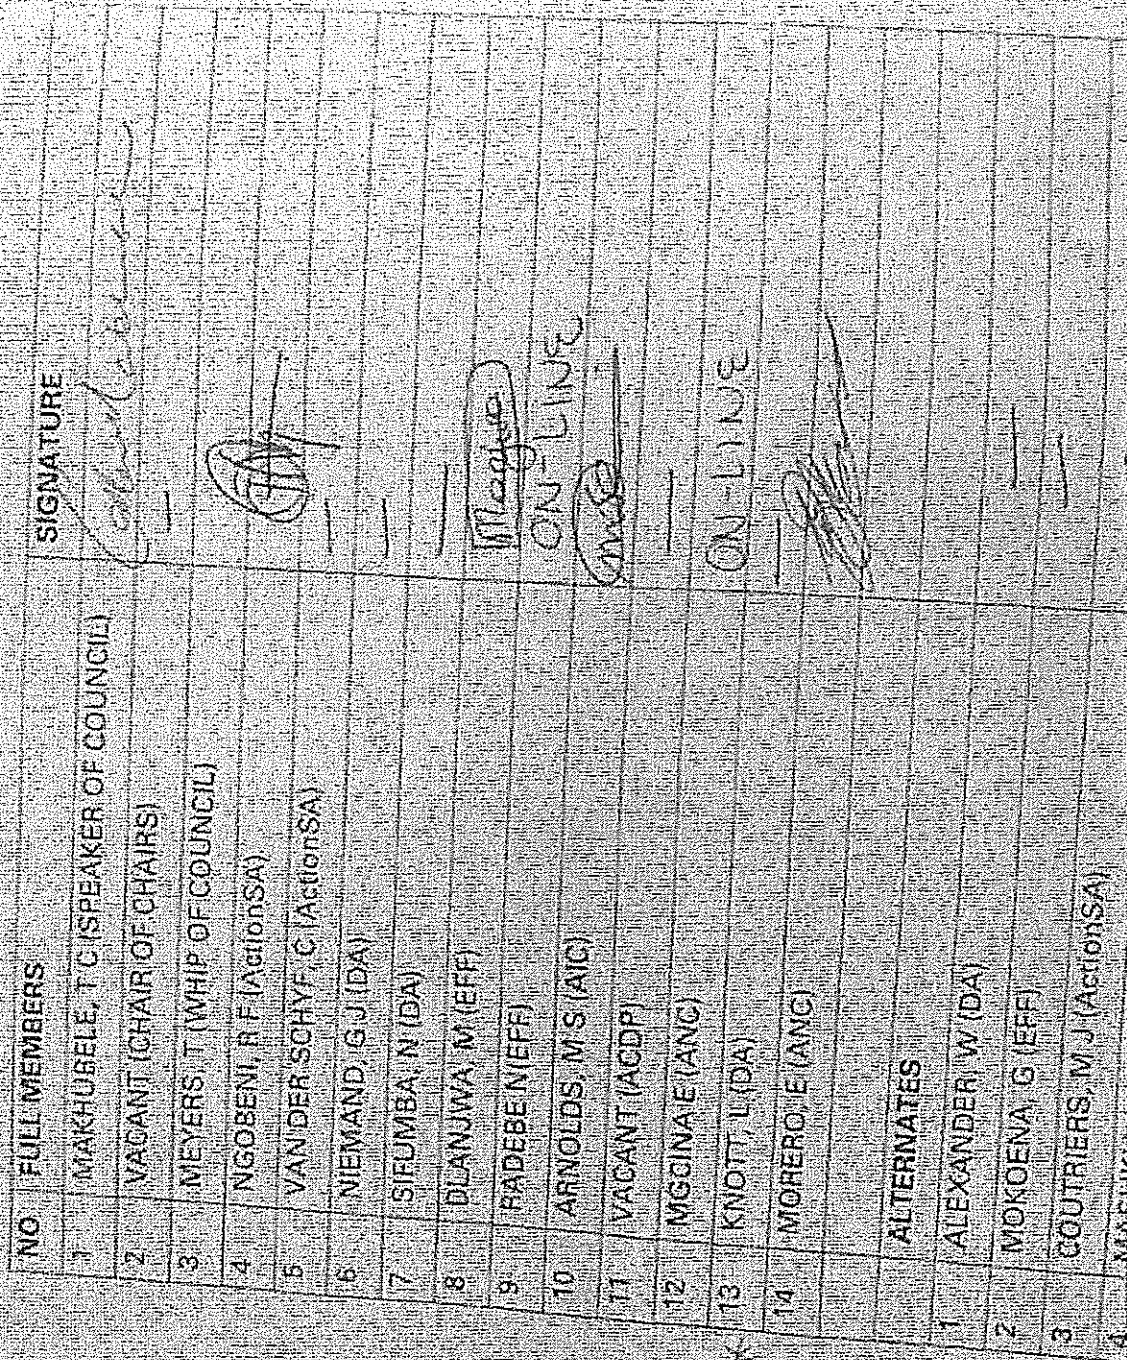 NO FULL MEMBERS SIGNATURE
1 MAKHUBELE, T C (SPEAKER OF COUNCIL)
2 VACANT (CHAIR OF CHAIRS) —
3 MEYERS, T (WHIP OF COUNCIL)
4 NGOBENI, R F (ActionSA)
5 VAN DER SCHYF, C (ActionSA) —
6 NIEMAND, G J (DA) —
7 SIFUMBA, N (DA) —
8 DLANJWA, M (EFF)
9 RADEBE N (EFF) ON-LINE
10 ARNOLDS, M S (AIC)
11 VACANT (ACDP) —
12 MGCINA E (ANC) ON-LINE
13 KNOTT, L (DA) —
14 MORERO, E (ANC)
ALTERNATES
1 ALEXANDER, W (DA)
2 MOKOENA, G (EFF) —
3 COUTRIERS, M J (ActionSA) —
4